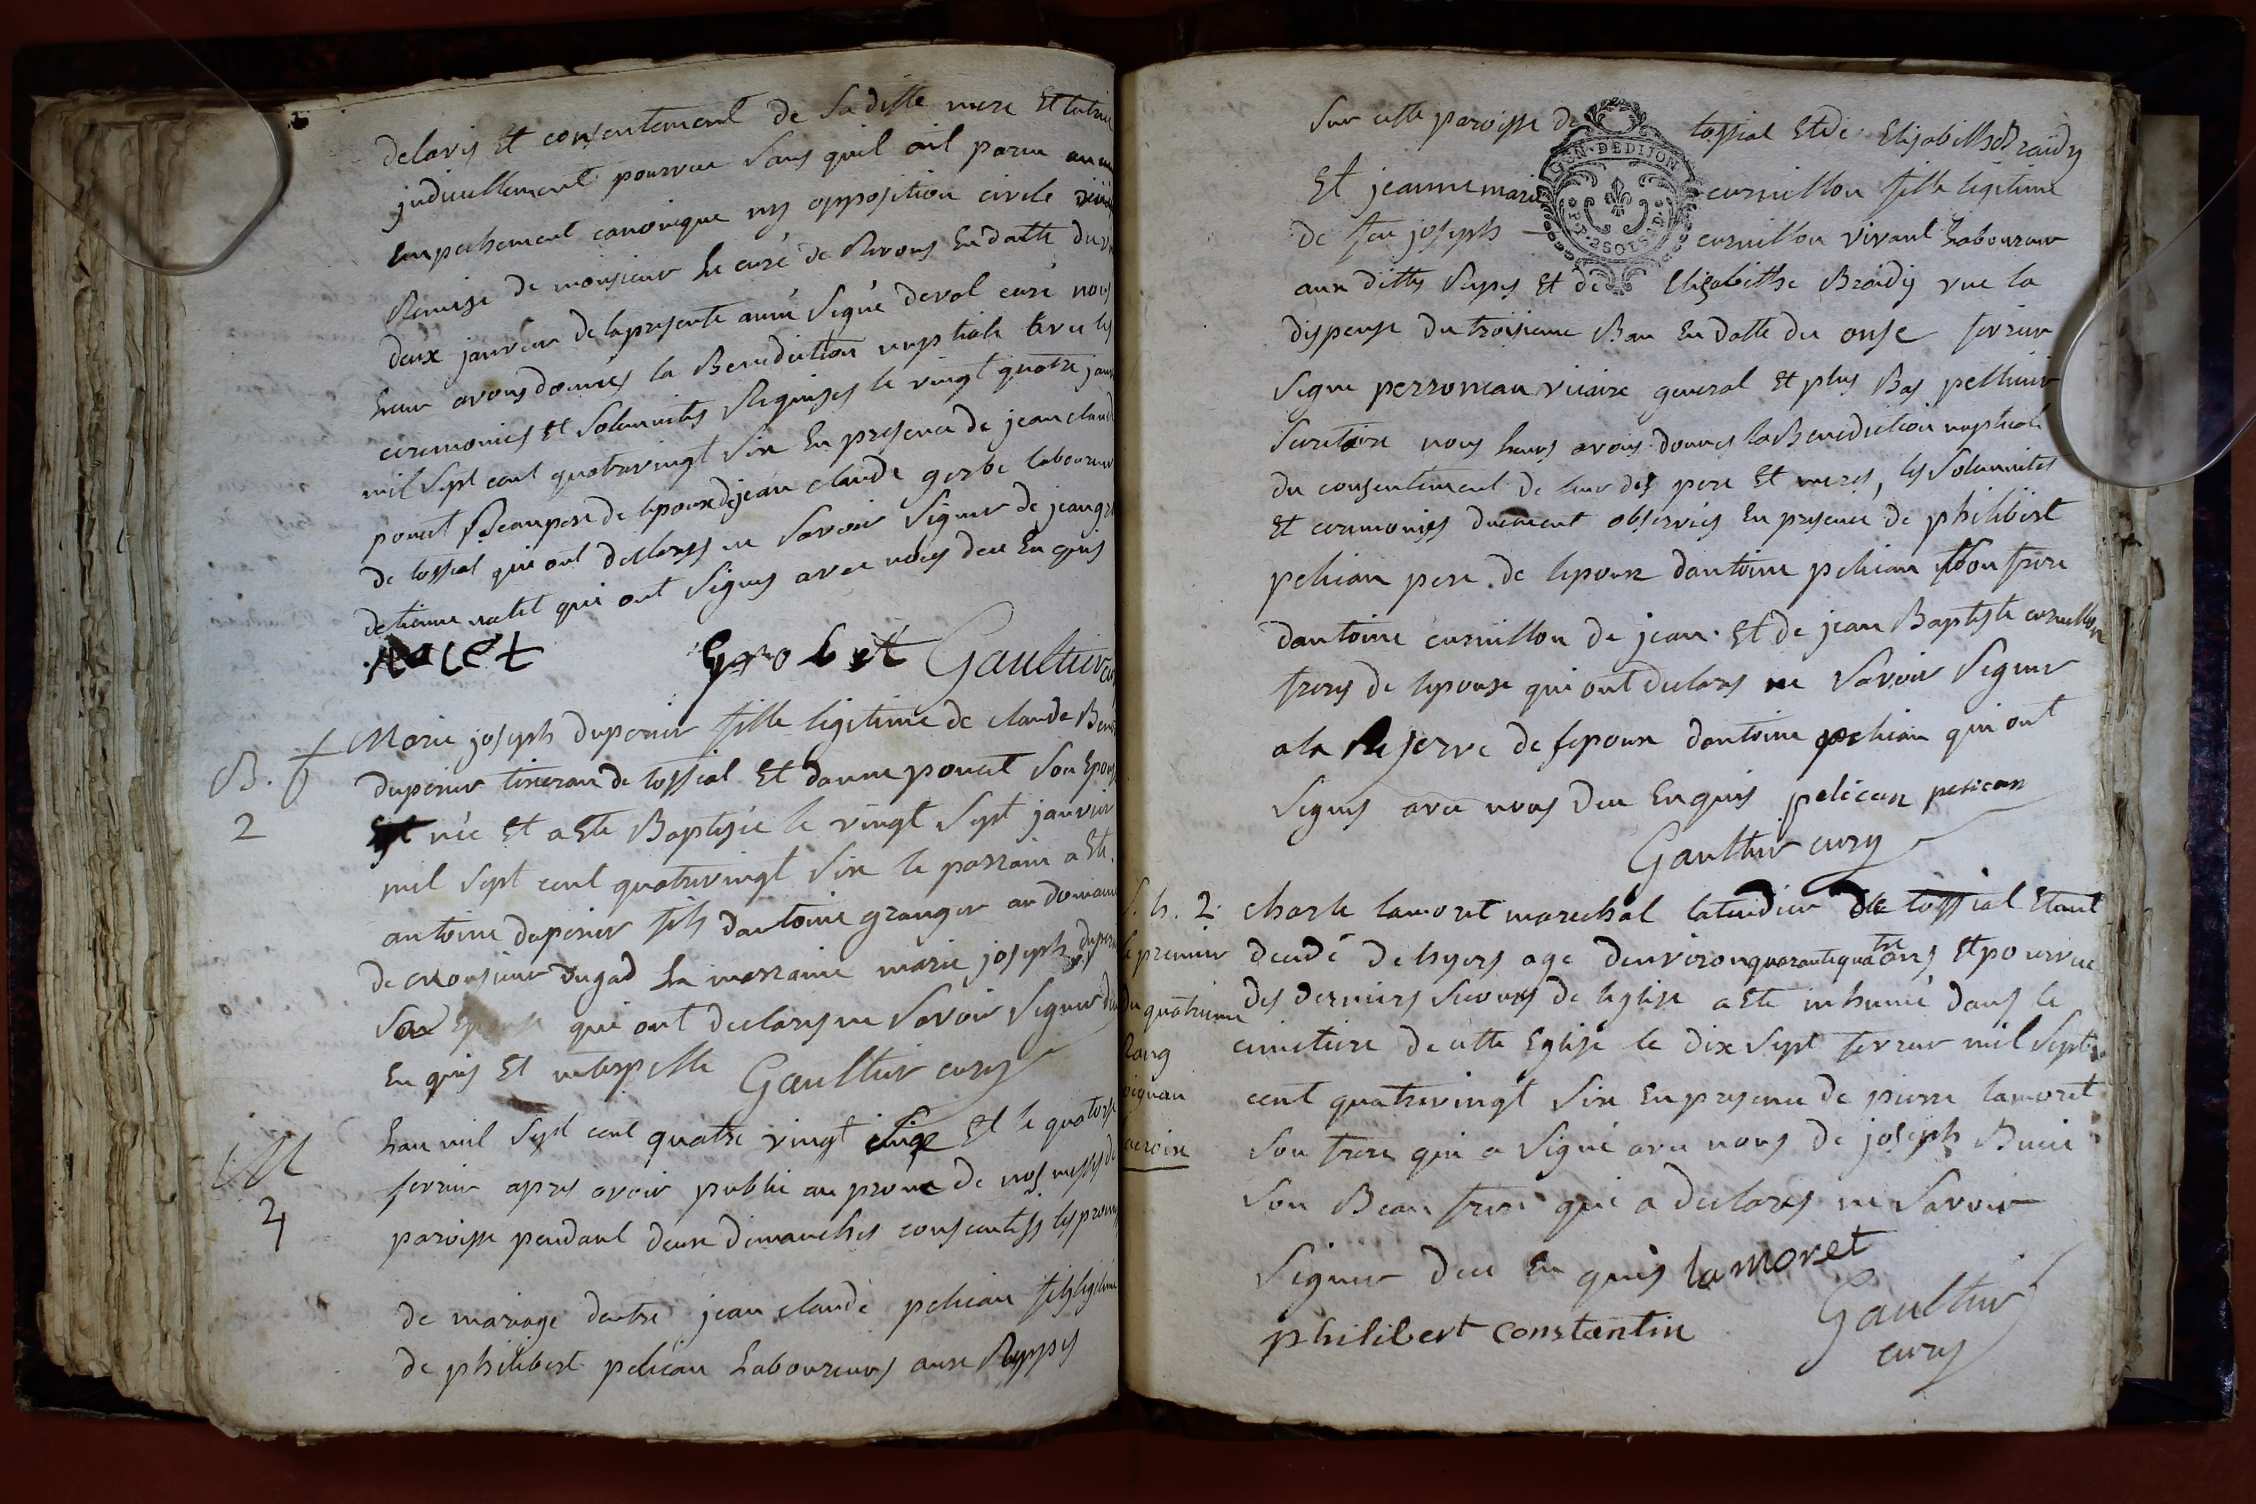 delavis Et consentement de Sa ditte mere Et tutrice
judiciellement pourvue Sans quil ait parue aucun
Empechement canonique ny opposition civile
Remise de monsieur Le curé de Rivons En datte du
deux janvier de la presente année Signé deval curé nous
Leur avons donnés la Benediction nuptiale avec les
ceremonies Et Solemnités Requises le vingt quatre janv
mil Sept cent quatrevingt Six En presence de jean claude
poncet Beaupere de lepoux de jean claude gerbe laboureur
de tossiat qui ont declarés ne Savoir Signer de jean
detienne natet qui ont Signés avec nous deu En quis
natet Grobet Gaultier curé
B. f
2
Marie joseph duperier fille legitime de claude
duperier tisseran de tossiat Et danne poncet Son Epouse
Est née Et a Eté Baptisée le vingt Sept janvier
mil Sept cent quatrevingt Six le parrain a Eté
antoine duperier fils dantoine granger au domaine
de Monsieur dugad La marraine marie joseph
Son Epouse qui ont declarés ne Savoir Signer
En quis Et interpellé Gaultier cury
M
2
Lan mil Sept cent quatre vingt Six Et le quatorse
fevrier apres avoir publié au prone de nos messes de
paroisse pendant deux dimanches consecutifs les promesses
de mariage dentre jean claude pelican fils legitime
de philibert pelican Laboureurs aux Rippes
Sur cette paroisse de tossiat Et de Elisabeth Braidy
Et jeanne marie cornillon fille legitime
de feu joseph cornillon vivant Laboureur
GEN. DE DIJON
aux dittes Rippes Et de Elizabethe Braidy vue la
dispense du troisieme Ban En datte du onse fevrier
Signe perroneau vicaire general Et plus Bas
Secretaire nous Leurs avons donnés la Benediction nuptiale
du consentement de leur des pere Et meres, les Solemnités
Et ceremonies duement observées En presence de philibert
pelican pere de lepoux dantoine pelican Son frere
dantoine cornillon de jean Et de jean Baptiste cornillon
freres de lepouse qui ont declarés ne Savoir Signer
a la Reserve de lepoux dantoine pelican qui ont
Signés avec nous deu Enquis pelican pelican
Gaultier cury
S. h. 2
le premier
du quatrieme
Rang
charle lamoret marechal tailandier de tossiat Etant
decedé dehyers age denviron quarante quatre ans Et pourvue
des derniers Secours de leglise a Eté inhumé dans le
cimetiere de cette Eglise le dix Sept fevrier mil Sept
cent quatrevingt Six En presence de pierre lamoret
Son frere qui a Signé avec nous de joseph
Son Beau frere qui a declarés ne Savoir
Signer deu En quis lamoret
philibert constantin Gaultier
cury